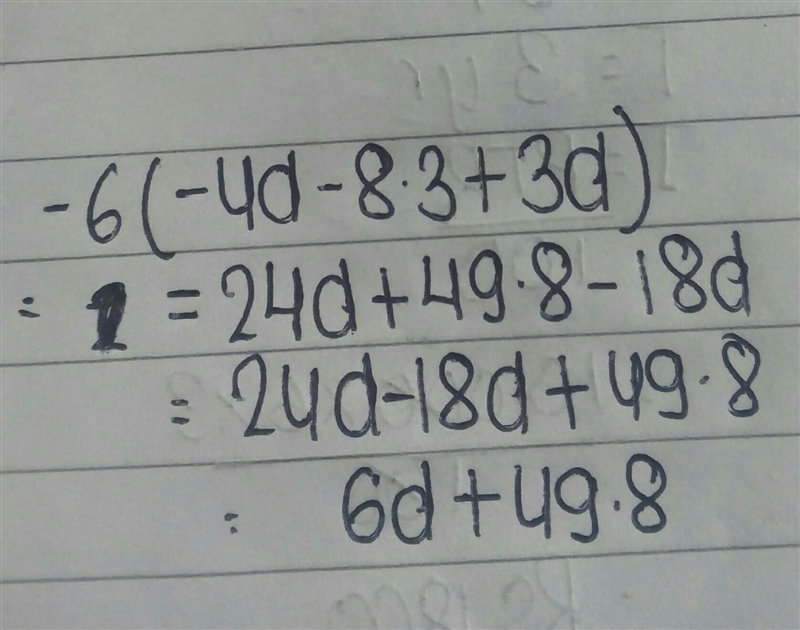 -6(-4d-8·3+3d)
= = 24d+49·8-18d
= 24d-18d+49·8
= 6d+49·8